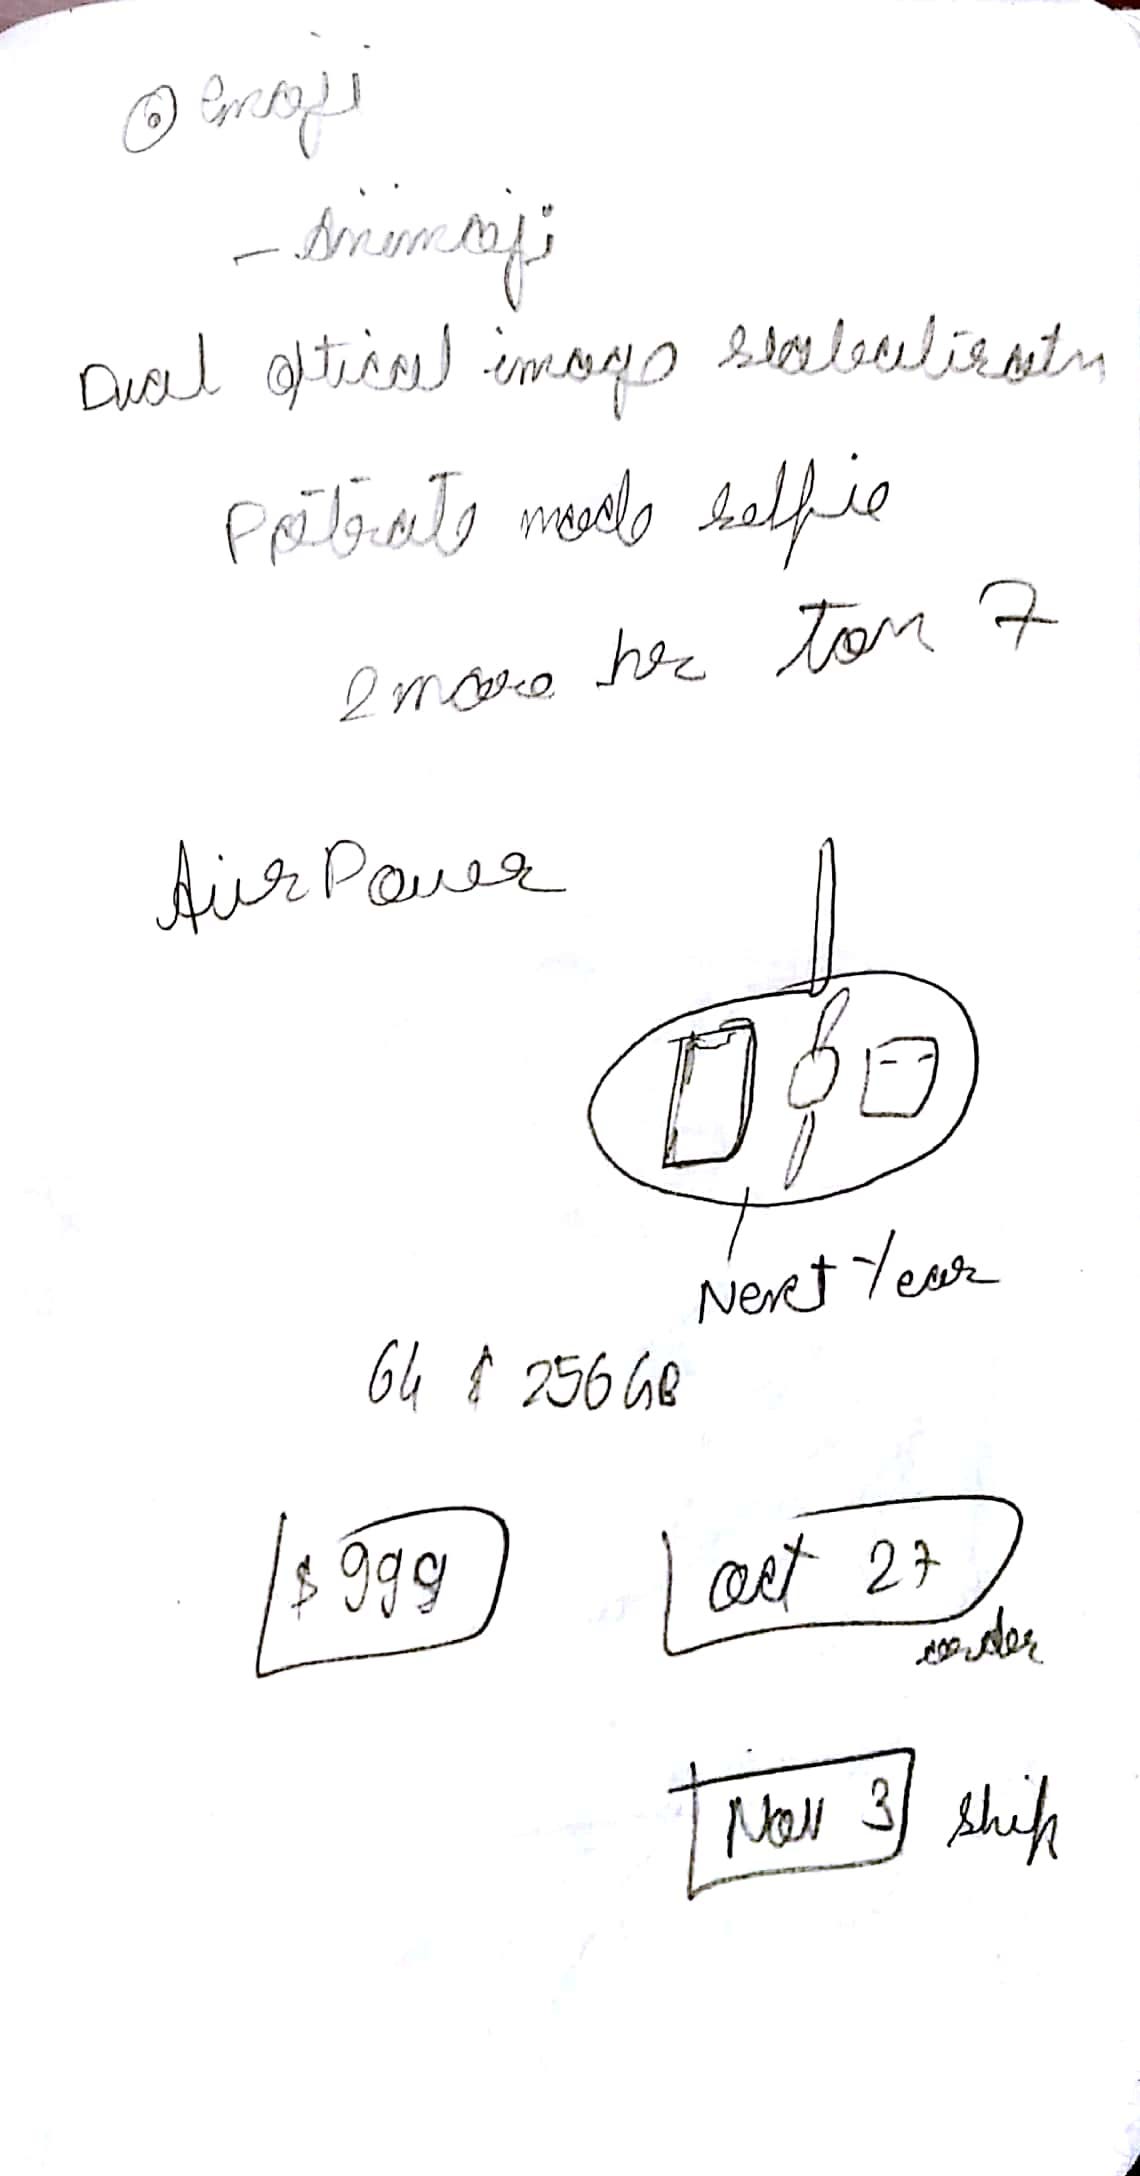 ⊙ emoji
- Animoji
Dual optical image stabalizatn
Potrate mode selfie
2 more hr tan 7
AirPower
Next Year
64 & 256 GB
$ 999
oct 27
order
Nov 3 ship